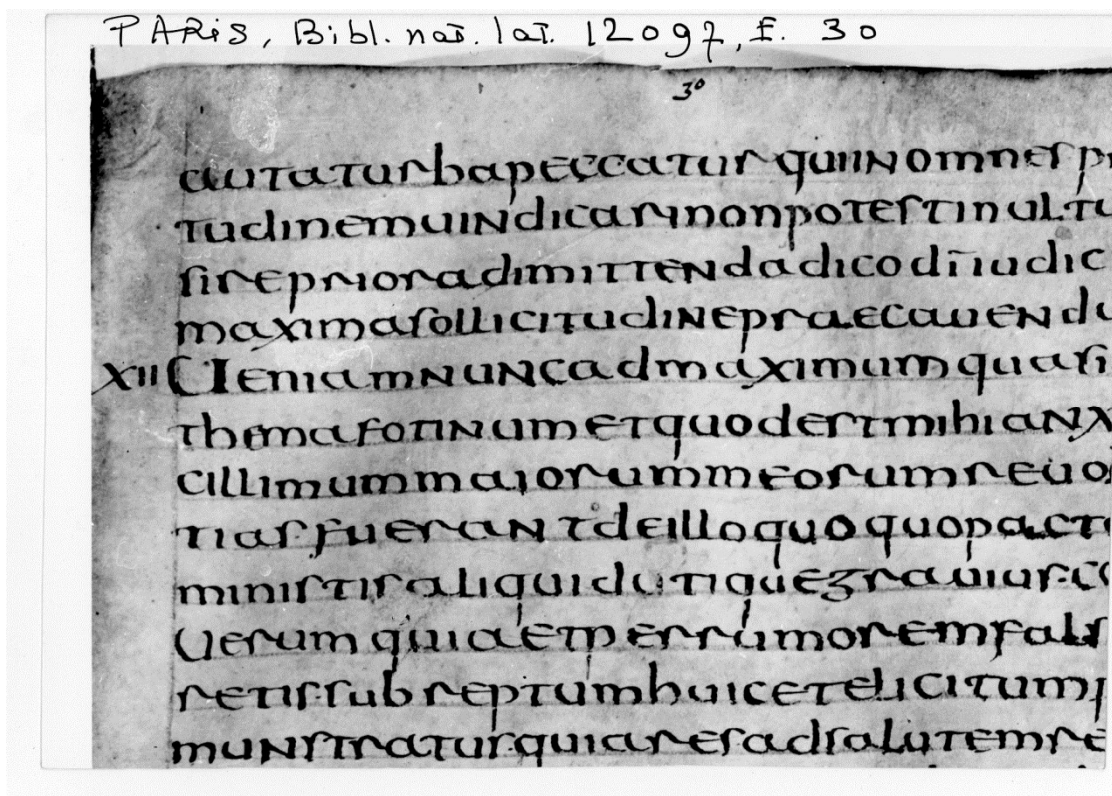 PARIS, Bibl. nat. lat. 12097, f. 30
30
aut a turba peccatur qui in omnes pr
tudinem uindicari non potest inultu
sire priora dimittenda dico dī iudic
maxima sollicitudine praecauendu
XII Ueniam nunc ad maximum quasi
thema fotinum et quod est mihi anx
cillimum maiorum meorum reuo
tias fuerant de illo quoquo pacto
ministis aliquid utique grauius co
Uerum quia et per rumorem fals
retis subreptum huic et elicitum p
munstratur quia res ad salutem re